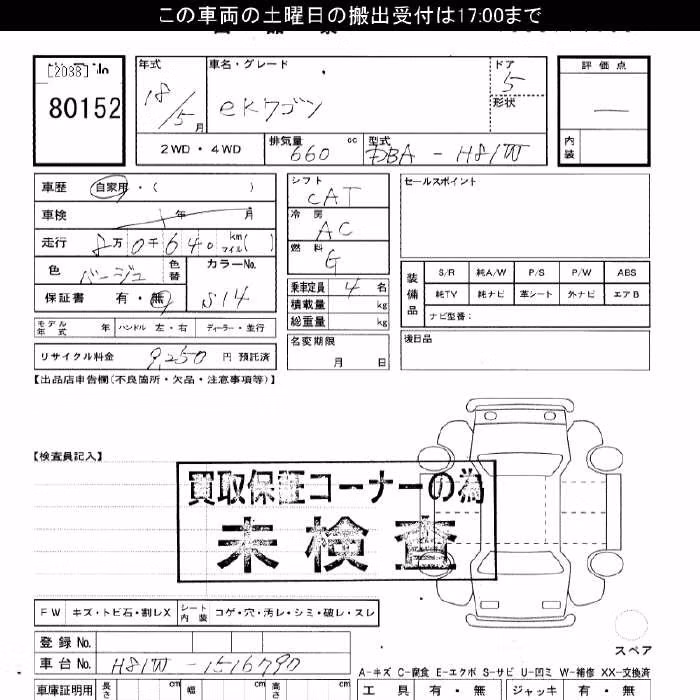 この車両の土曜日の搬出受付は17:00まで
[2038] No
80152
年式
18/5 月
車名・グレード
eKワゴン
ドア
5
形状
評価点
内装
2WD・4WD
排気量
660 cc
型式
DBA-H81W
車歴 自家用・( )
車検 年 月
走行 8万0千640 km マイル( )
色 ベージュ 色替
カラーNo.
S14
保証書 有・無
モデル年式 年 ハンドル 左・右 ディーラー・並行
リサイクル料金 9,250 円 預託済
シフト
CAT
冷房
AC
燃料
G
乗車定員 4 名
積載量 kg
総重量 kg
名変期限
月 日
セールスポイント
装備品
S/R 純A/W P/S P/W ABS
純TV 純ナビ 革シート 外ナビ エアB
ナビ型番:
後日品
【出品店申告欄(不良箇所・欠品・注意事項等)】
【検査員記入】
買取保証コーナーの為
未検査
FW キズ・トビ石・割レX シート内装 コゲ・穴・汚レ・シミ・破レ・スレ
登録No.
車台No. H81W-1516790
スペア
A-キズ C-腐食 E-エクボ S-サビ U-凹ミ W-補修 XX-交換済
車庫証明用 長さ cm 幅 cm 高さ cm
工具 有・無 ジャッキ 有・無